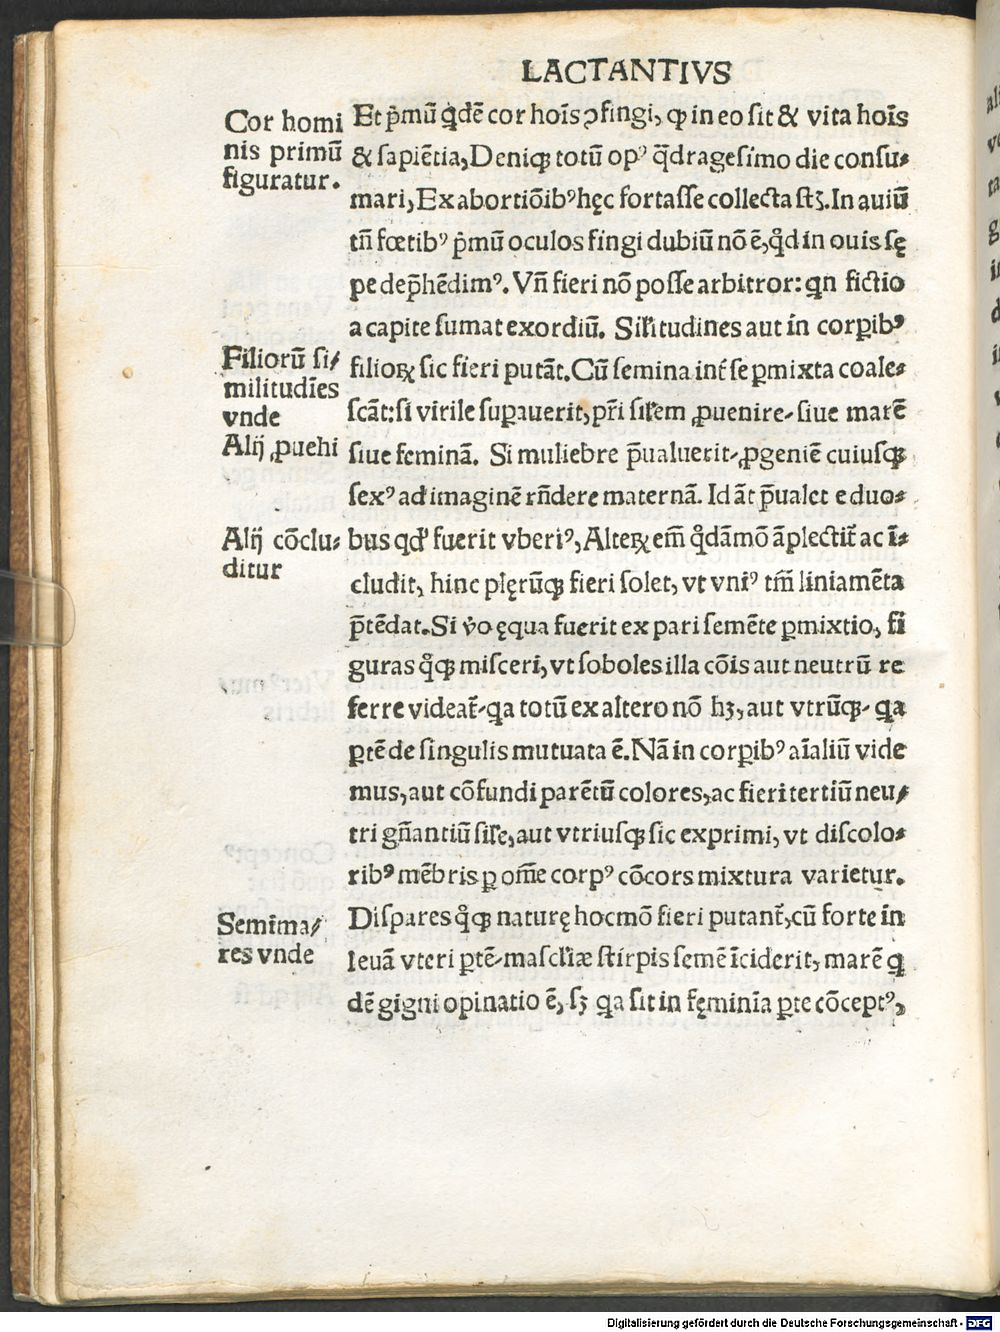 LACTANTIVS
Cor homi
nis primũ
figuratur.
Et p̃mũ q̃dẽ cor hoĩs ꝯfingi, ꝙ in eo sit & vita hoĩs
& sapiẽtia, Deniqꝫ totũ opꝰ q̃dragesimo die consu-
mari, Ex abortiõibꝰ hęc fortasse collecta stꝫ. In auiũ
tñ fœtibꝰ p̃mũ oculos fingi dubiũ nõ ẽ, qd̃ in ouis sę
pe dep̃hẽdimꝰ. Vñ fieri nõ posse arbitror: qn fictio
a capite sumat exordiũ. Silitudines aut in corꝑibꝰ
Filiorũ si/
militudĩes
vnde
filioꝝ sic fieri putãt. Cũ semina int̃ se ꝑmixta coale-
scãt: si virile suꝑauerit, pr̃i silem ꝓuenire- siue marẽ
Alij ꝓuehi
siue feminã. Si muliebre p̃ualuerit- ꝓgeniẽ cuiusqꝫ
sexꝰ ad imaginẽ rñdere maternã. Id ãt p̃ualet e duo-
Alij cõclu-
ditur
bus qd' fuerit vberiꝰ, Alteꝝ em̃ qdãmõ ãplectit̃ ac ĩ-
cludit, hinc plęrũqꝫ fieri solet, vt vniꝰ tm̃ liniamẽta
p̃tẽdat. Si v̊o ęqua fuerit ex pari semẽte ꝑmixtio, fi
guras qq̊ꝫ misceri, vt soboles illa cõis aut neutrũ re
ferre videat̃- qa totũ ex altero nõ hꝫ, aut vtrũqꝫ- qa
ꝑtẽ de singulis mutuata ẽ. Nã in corꝑibꝰ aĩaliũ vide
mus, aut cõfundi parẽtũ colores, ac fieri tertiũ neu/
tri gñantiũ sile, aut vtriusqꝫ sic exprimi, vt discolo-
ribꝰ mẽbris ꝑ om̃e corpꝰ cõcors mixtura varietur.
Semĩma/
res vnde
Dispares qq̊ꝫ naturę hoc mõ fieri putant̃, cũ forte in
leuã vteri ꝑtẽ- masclĩæ stirpis semẽ ĩciderit, marẽ q
dẽ gigni opinatio ẽ, sꝫ qa sit in fęminĩa ꝑte cõceptꝰ,
Digitalisierung gefördert durch die Deutsche Forschungsgemeinschaft - DFG